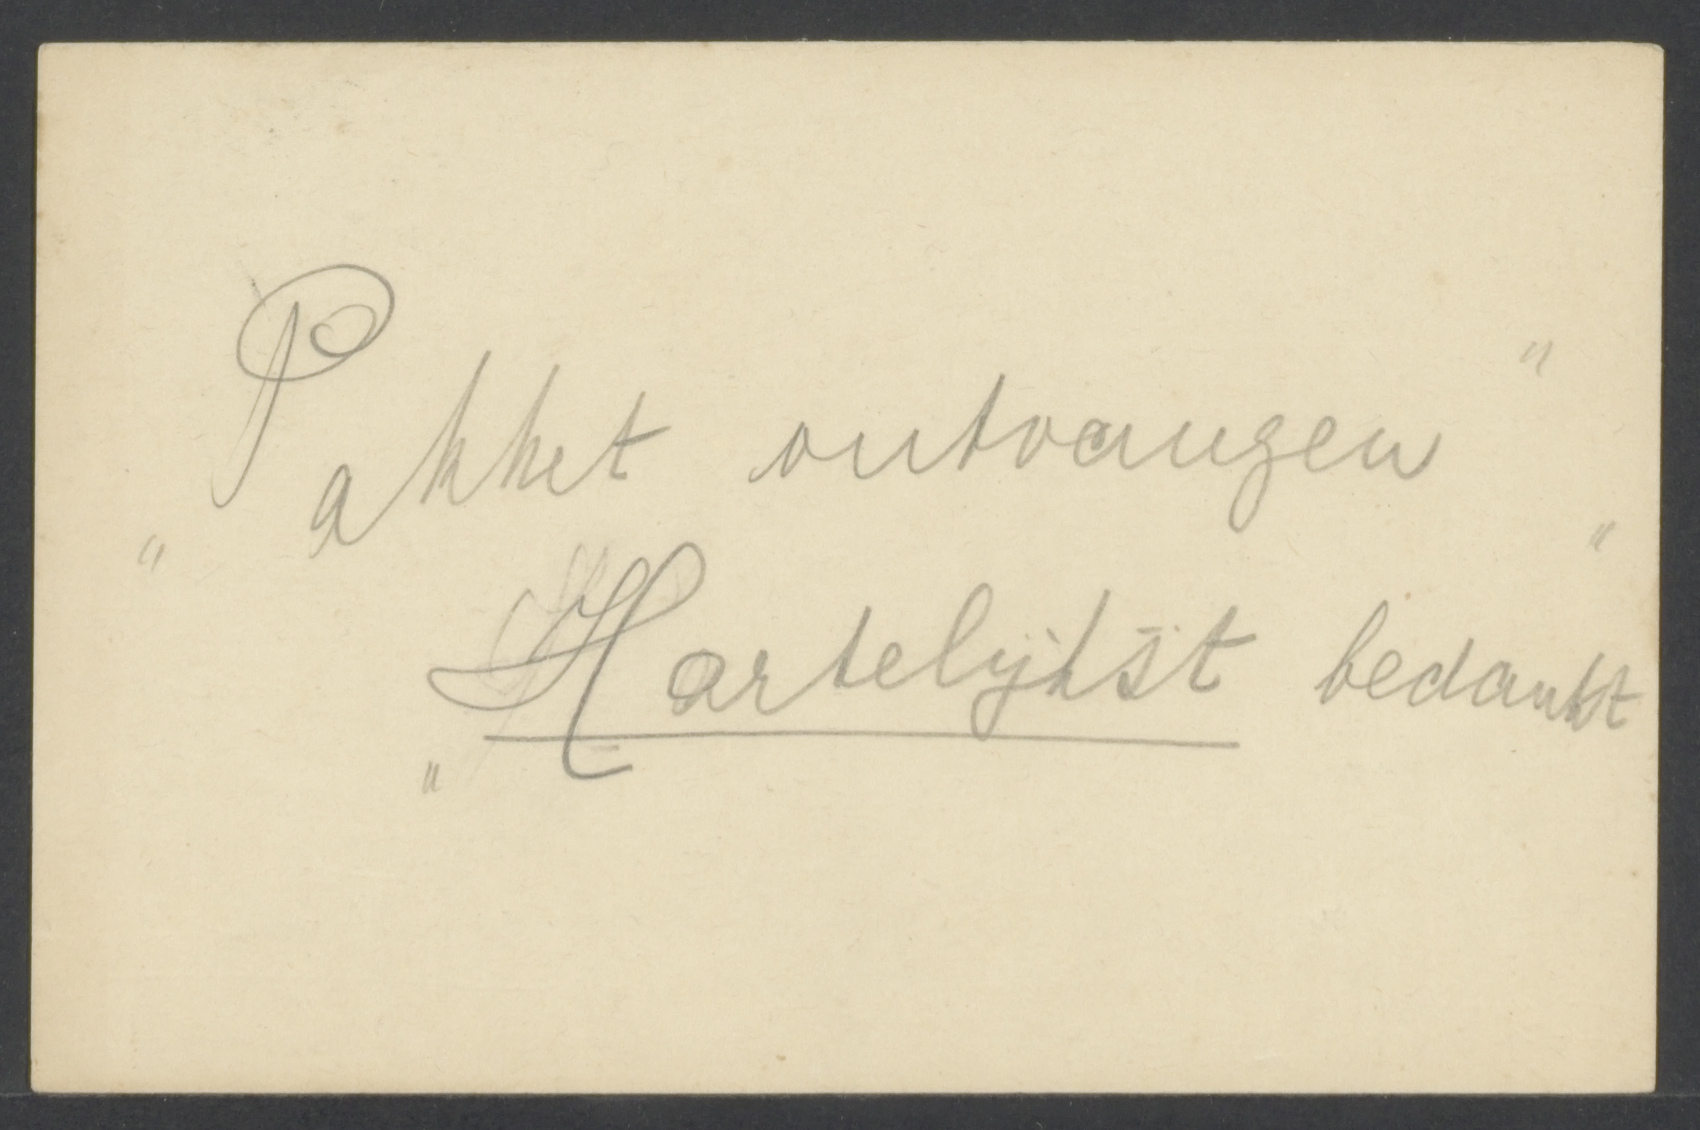 „Pakket ontvangen"
„Hartelijkst bedankt"